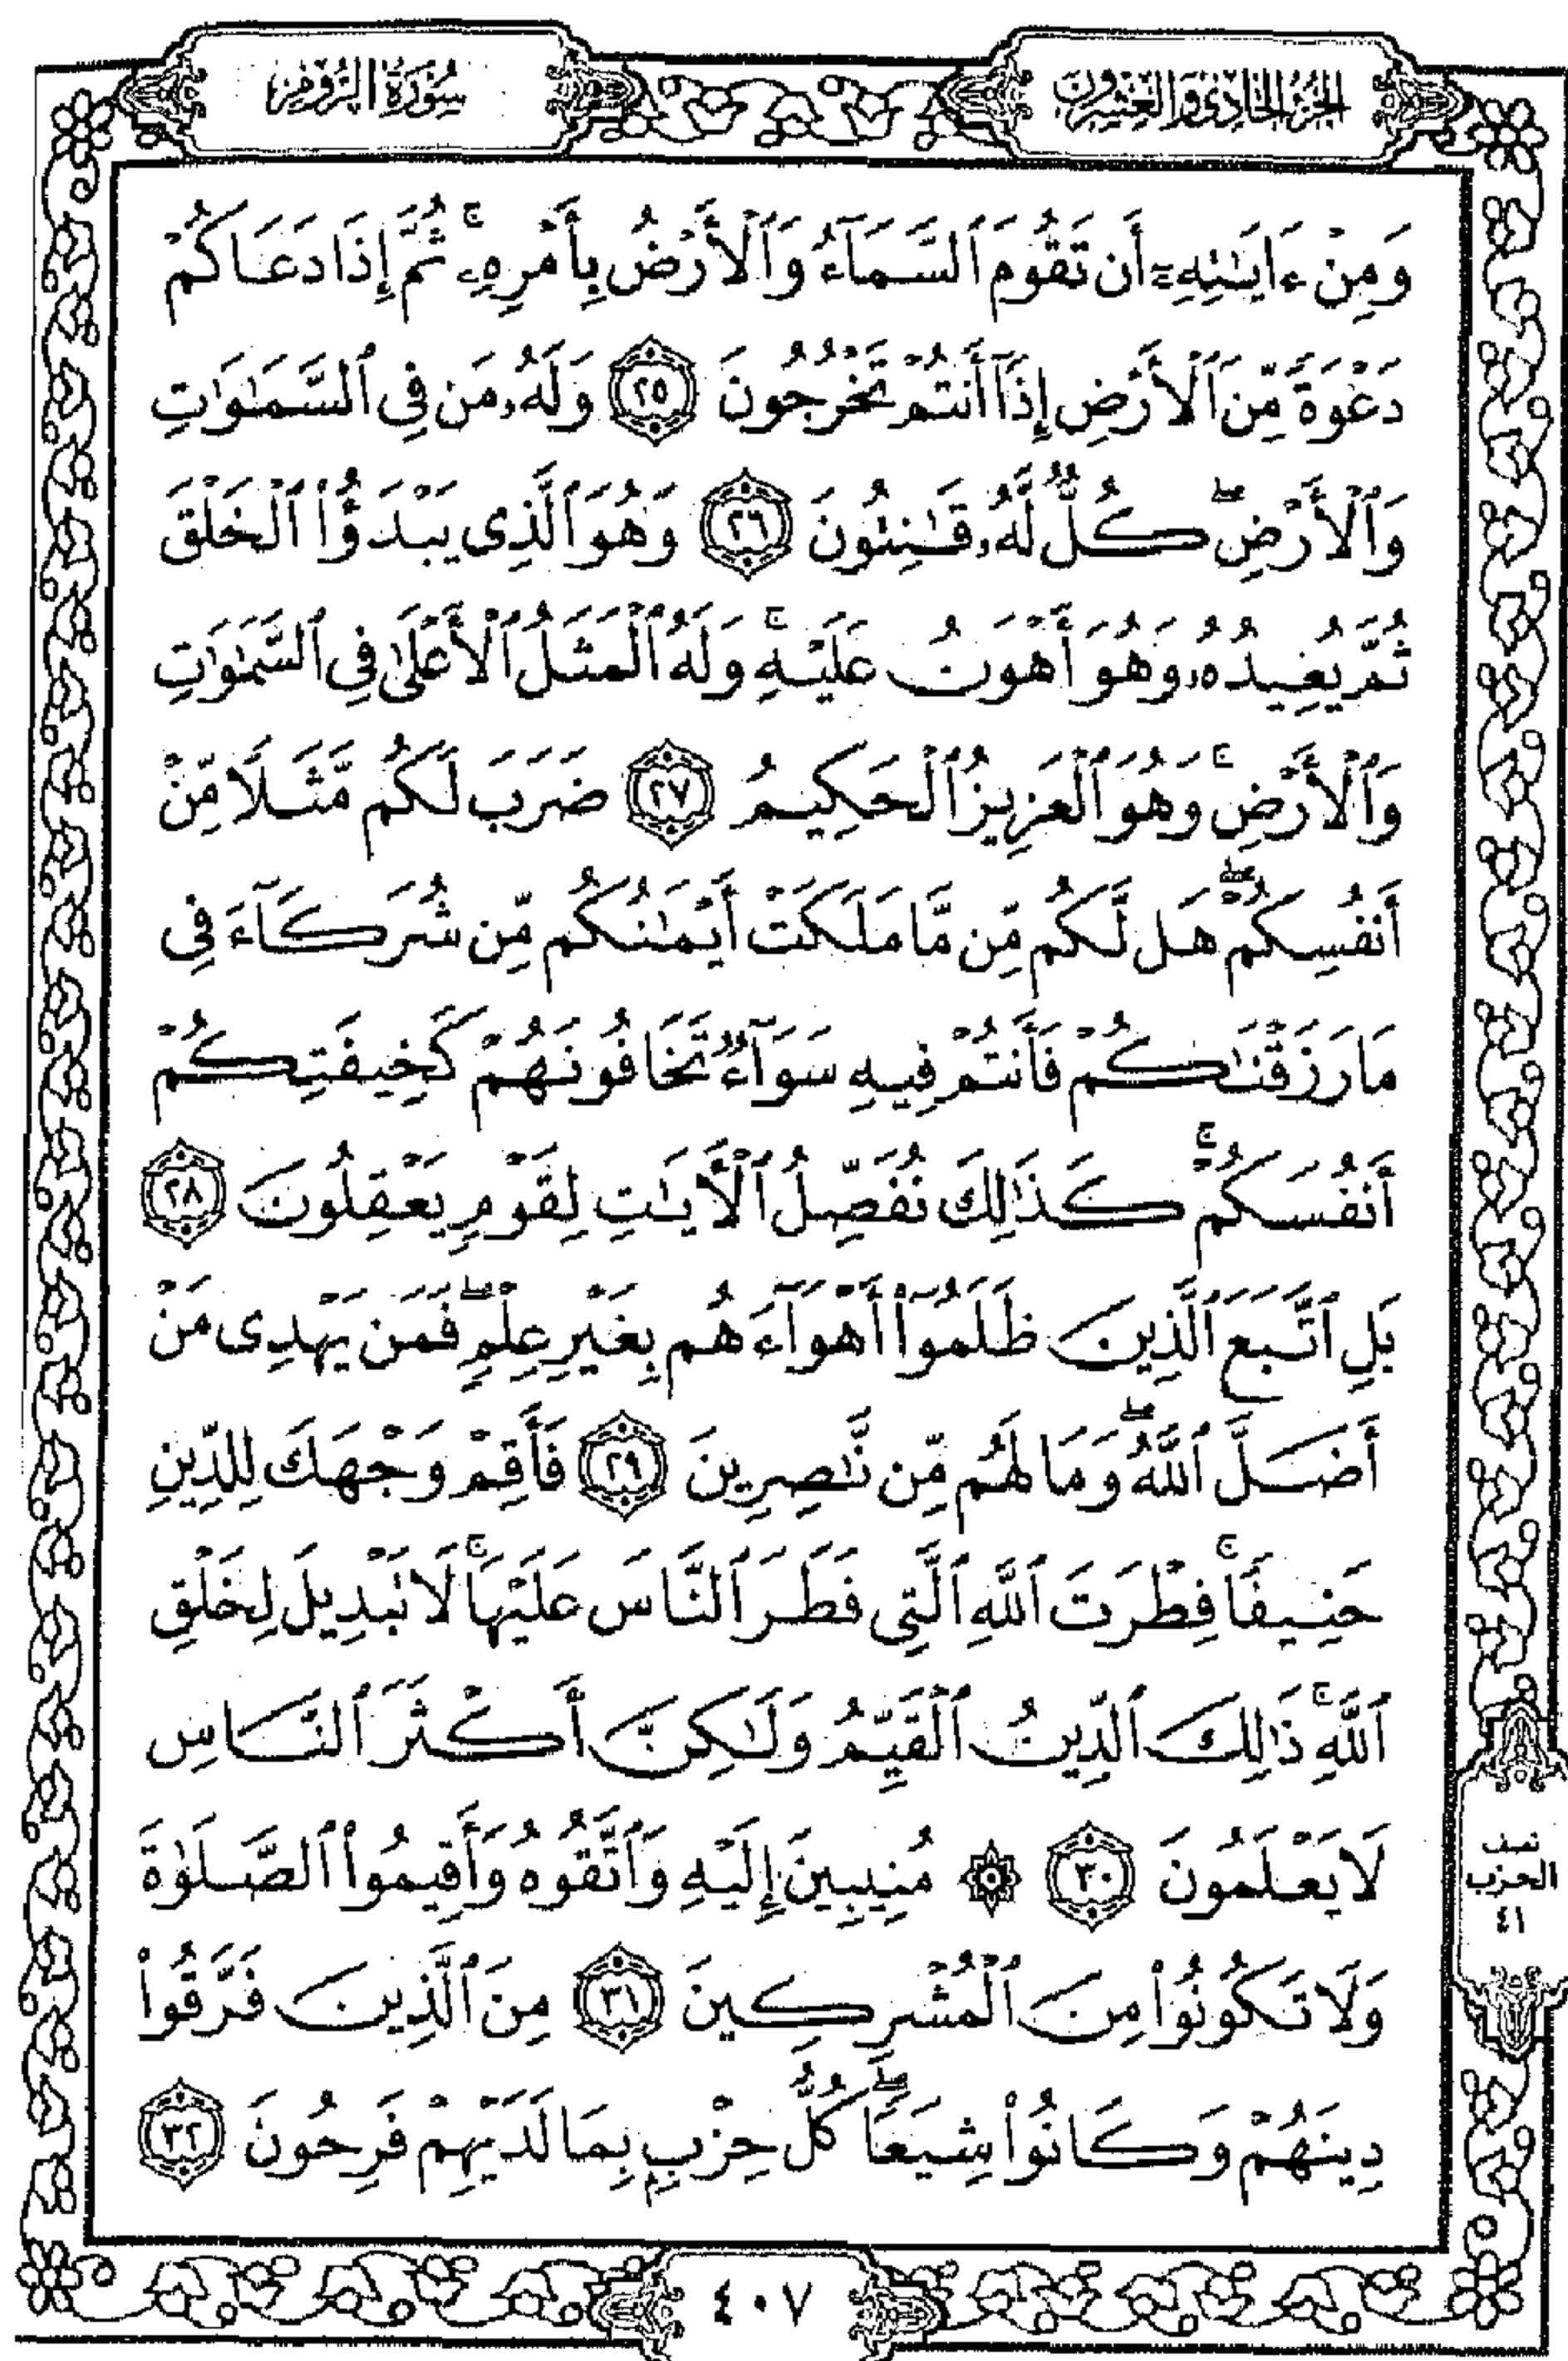 الجزء الحادي والعشرون
سورة الروم
وَمِنْ ءَايَٰتِهِۦٓ أَن تَقُومَ ٱلسَّمَآءُ وَٱلْأَرْضُ بِأَمْرِهِۦ ۚ ثُمَّ إِذَا دَعَاكُمْ
دَعْوَةً مِّنَ ٱلْأَرْضِ إِذَآ أَنتُمْ تَخْرُجُونَ ٢٥ وَلَهُۥ مَن فِى ٱلسَّمَٰوَٰتِ
وَٱلْأَرْضِ ۖ كُلٌّ لَّهُۥ قَٰنِتُونَ ٢٦ وَهُوَ ٱلَّذِى يَبْدَؤُا۟ ٱلْخَلْقَ
ثُمَّ يُعِيدُهُۥ وَهُوَ أَهْوَنُ عَلَيْهِ ۚ وَلَهُ ٱلْمَثَلُ ٱلْأَعْلَىٰ فِى ٱلسَّمَٰوَٰتِ
وَٱلْأَرْضِ ۚ وَهُوَ ٱلْعَزِيزُ ٱلْحَكِيمُ ٢٧ ضَرَبَ لَكُم مَّثَلًا مِّنْ
أَنفُسِكُمْ ۖ هَل لَّكُم مِّن مَّا مَلَكَتْ أَيْمَٰنُكُم مِّن شُرَكَآءَ فِى
مَا رَزَقْنَٰكُمْ فَأَنتُمْ فِيهِ سَوَآءٌ تَخَافُونَهُمْ كَخِيفَتِكُمْ
أَنفُسَكُمْ ۚ كَذَٰلِكَ نُفَصِّلُ ٱلْأٓيَٰتِ لِقَوْمٍ يَعْقِلُونَ ٢٨
بَلِ ٱتَّبَعَ ٱلَّذِينَ ظَلَمُوٓا۟ أَهْوَآءَهُم بِغَيْرِ عِلْمٍ ۖ فَمَن يَهْدِى مَنْ
أَضَلَّ ٱللَّهُ ۖ وَمَا لَهُم مِّن نَّٰصِرِينَ ٢٩ فَأَقِمْ وَجْهَكَ لِلدِّينِ
حَنِيفًا ۚ فِطْرَتَ ٱللَّهِ ٱلَّتِى فَطَرَ ٱلنَّاسَ عَلَيْهَا ۚ لَا تَبْدِيلَ لِخَلْقِ
ٱللَّهِ ۚ ذَٰلِكَ ٱلدِّينُ ٱلْقَيِّمُ وَلَٰكِنَّ أَكْثَرَ ٱلنَّاسِ
لَا يَعْلَمُونَ ٣٠ ۞ مُنِيبِينَ إِلَيْهِ وَٱتَّقُوهُ وَأَقِيمُوا۟ ٱلصَّلَوٰةَ
وَلَا تَكُونُوا۟ مِنَ ٱلْمُشْرِكِينَ ٣١ مِنَ ٱلَّذِينَ فَرَّقُوا۟
دِينَهُمْ وَكَانُوا۟ شِيَعًا ۖ كُلُّ حِزْبٍۭ بِمَا لَدَيْهِمْ فَرِحُونَ ٣٢
نصف
الحزب
٤١
٤٠٧